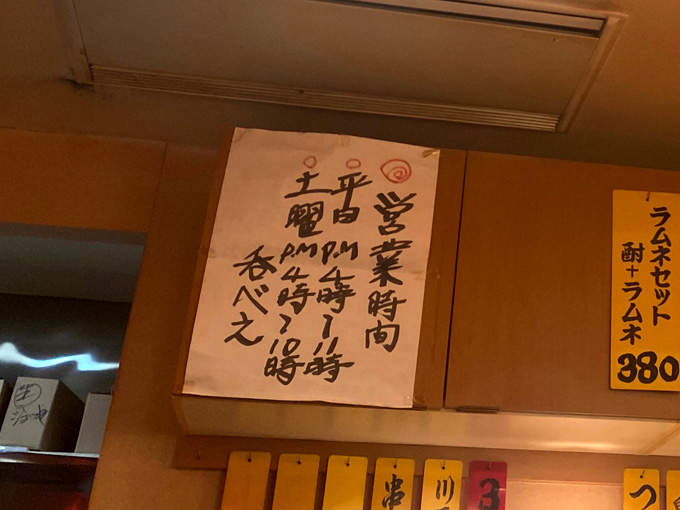 営業時間
平日 P.M 4時〜11時
土曜 P.M 4時〜10時
呑べえ
ラムネセット
酎+ラムネ
380
生
串
川
3
つ